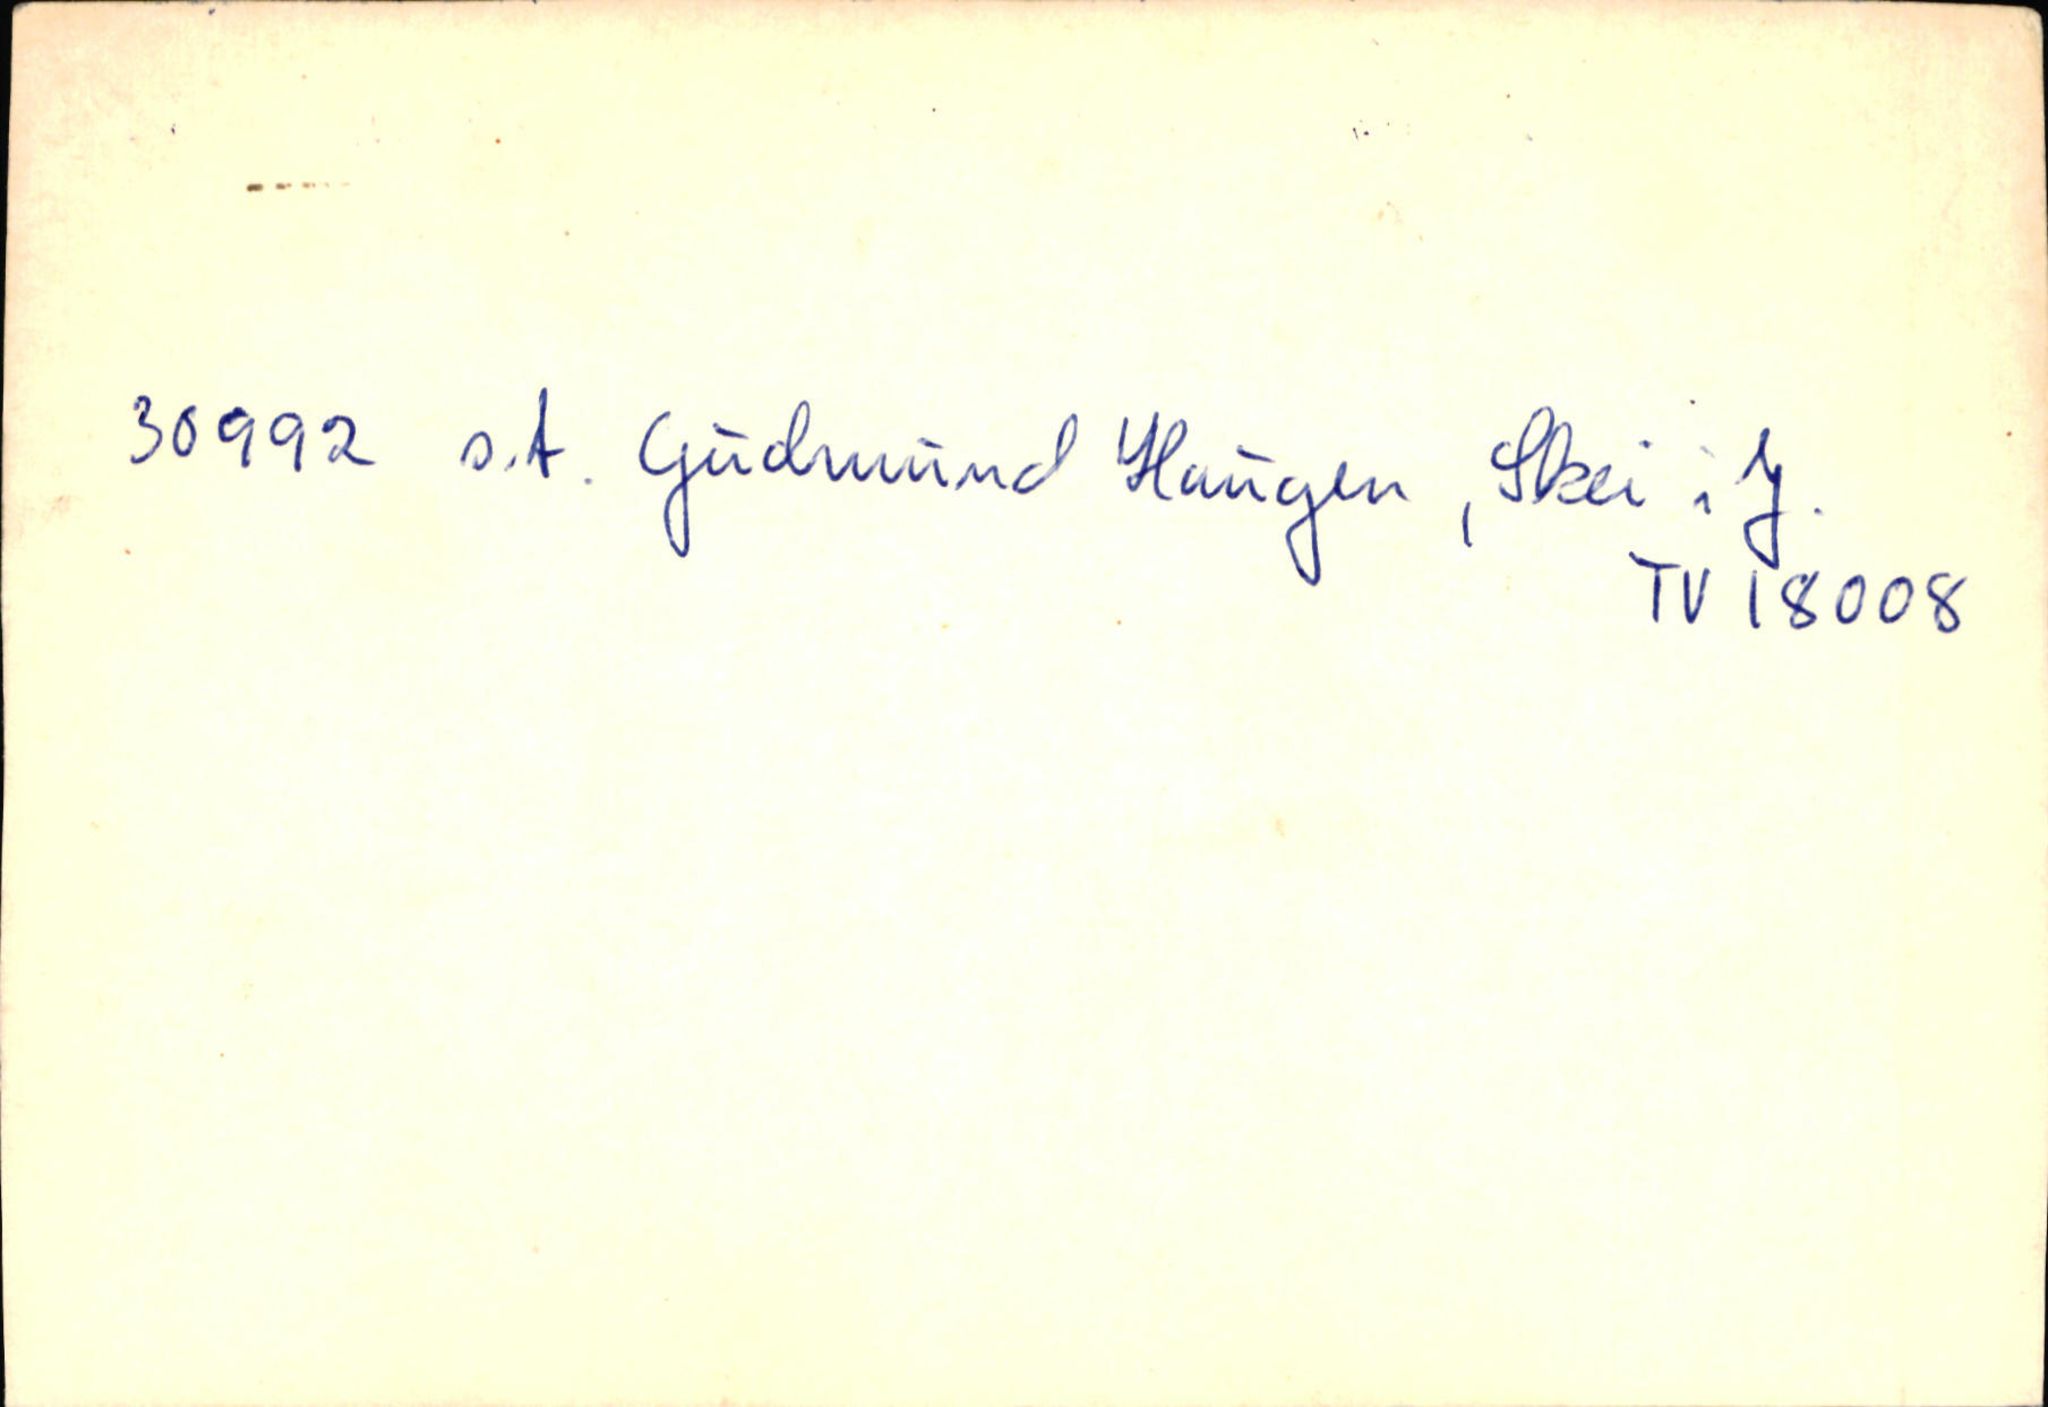 30992 s.A. Gudmund Haugen, Skei i J.
TV 18008